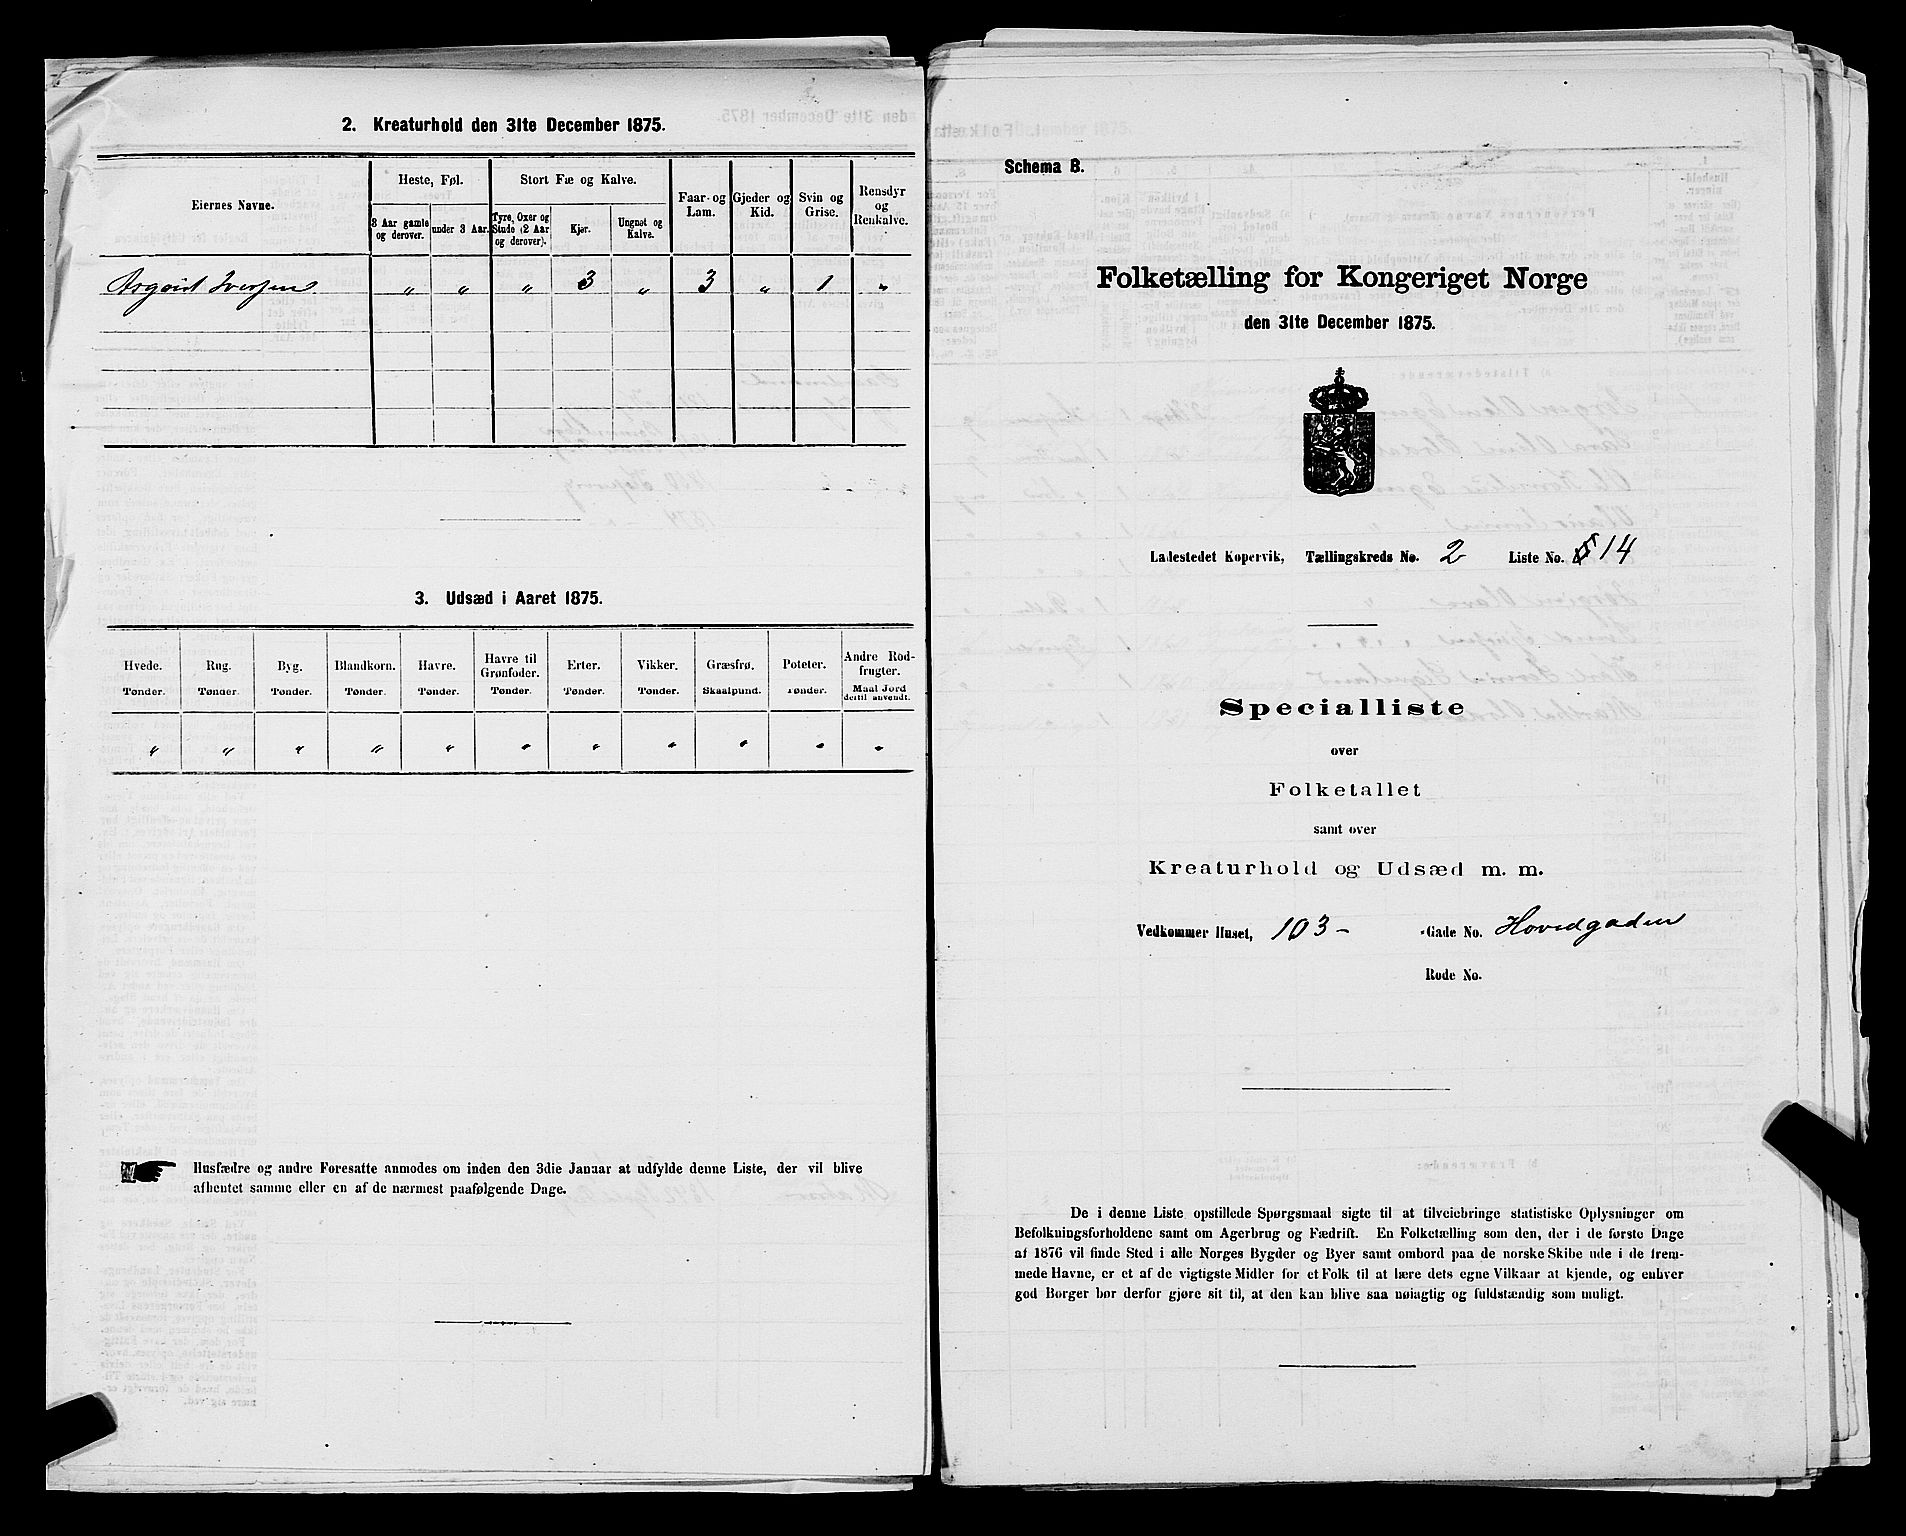 2. Kreaturhold den 31te December 1875.
Eiernes Navne.
Heste, Føl.
Stort Fæ og Kalve.
Faar- og Lam.
Gjeder og Kid.
Svin og Grise.
Rensdyr og Renkalve.
3 Aar gamle og derover.
under 3 Aar.
Tyre, Oxer og Stude (2 Aar og derover).
Kjør.
Ungnøt og Kalve.
Asgvist Iversen " " " 3 " 3 " 1 "
3. Udsæd i Aaret 1875.
Hvede. Rug. Byg. Blandkorn. Havre. Havre til Grønfoder. Erter. Vikker. Græsfrø. Poteter. Andre Rodfrugter.
Tønder. Tønder. Tønder. Tønder. Tønder. Tønder. Tønder. Tønder. Skaalpund. Tønder. Maal Jord dertil anvendt.
" " " " " " " " " " "
Husfædre og andre Foresatte anmodes om inden den 3die Januar at udfylde denne Liste, der vil blive
afhentet samme eller en af de nærmest paafølgende Dage.
Schema B.
Folketælling for Kongeriget Norge
den 31te December 1875.
Ladestedet Kopervik, Tællingskreds No. 2 Liste No. 14
Specialliste
over
Folketallet
samt over
Kreaturhold og Udsæd m. m.
Vedkommer Huset, 103 - Gade No. Hovedgaden
Rode No.
De i denne Liste opstillede Spørgsmaal sigte til at tilveiebringe statistiske Oplysninger om
Befolkningsforholdene samt om Agerbrug og Fædrift. En Folketælling som den, der i de første Dage
af 1876 vil finde Sted i alle Norges Bygder og Byer samt ombord paa de norske Skibe ude i de frem-
mede Havne, er et af de vigtigste Midler for et Folk til at lære dets egne Vilkaar at kjende, og enhver
god Borger bør derfor gjøre sit til, at den kan blive saa nøiagtig og fuldstændig som muligt.